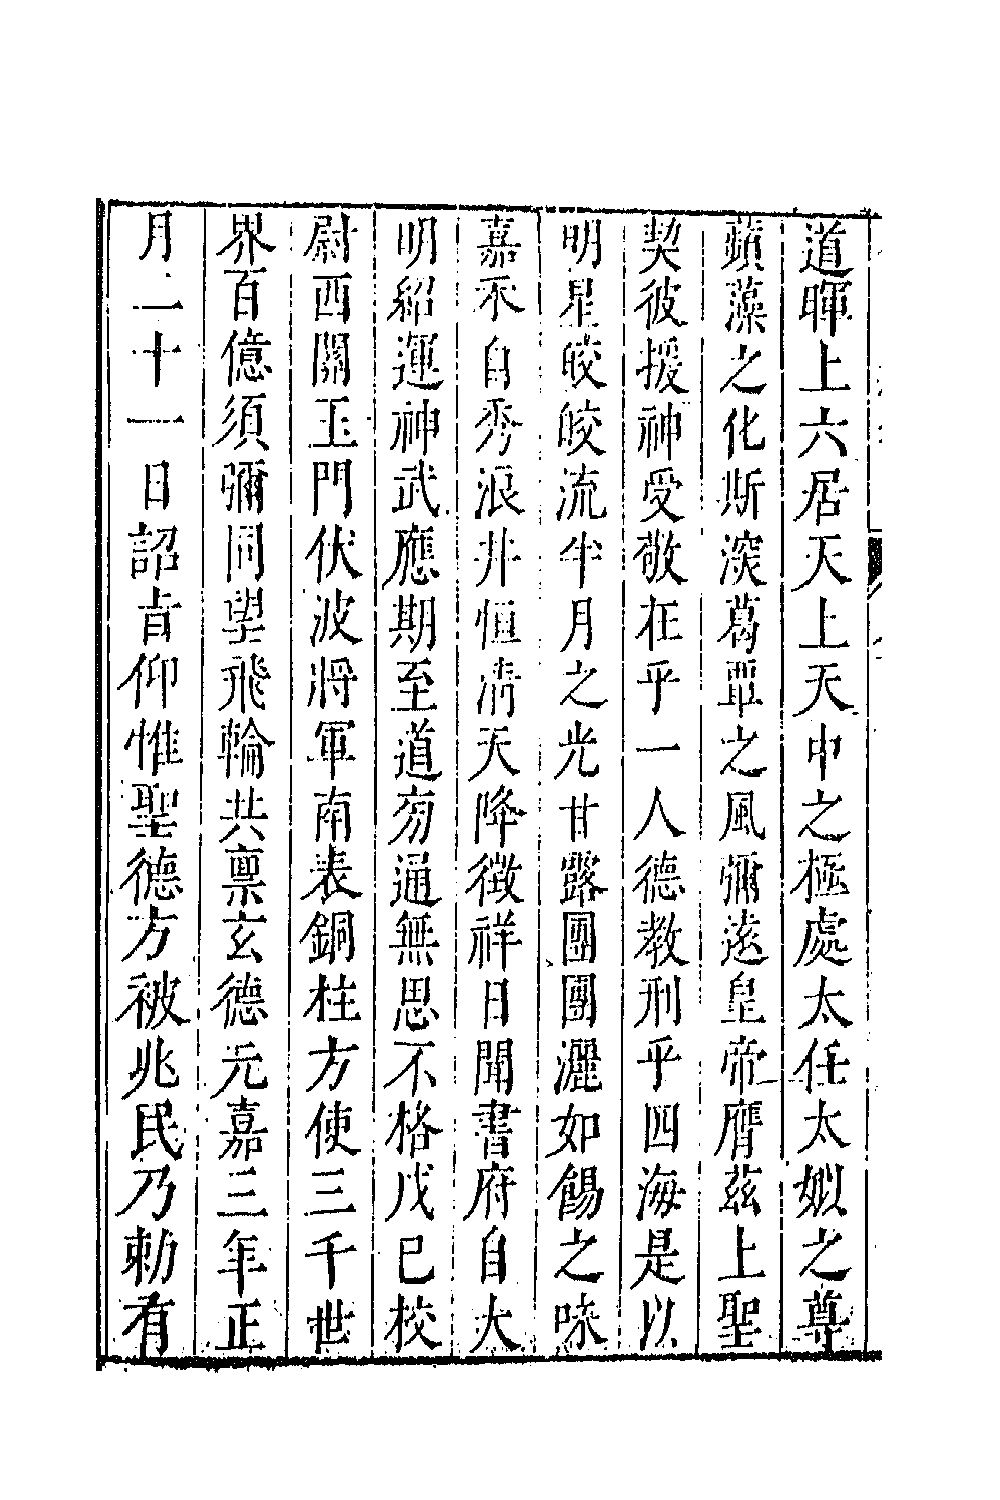 道暉上六居天上天中之極處太任太姒之尊
蘋藻之化斯深葛覃之風彌遠皇帝膺茲上聖
契彼援神受敬在乎一人德教刑乎四海是以
明星皎皎流半月之光甘露團團灑如餳之味
嘉禾自秀浪井恒清天降徵祥日聞書府自大
明紹運神武應期至道旁通無思不格戊巳校
尉西關玉門伏波將軍南表銅柱方使三千世
界百億須彌同望飛輪共禀玄德元嘉三年正
月二十一日詔旨仰惟聖德方被兆民乃勅有